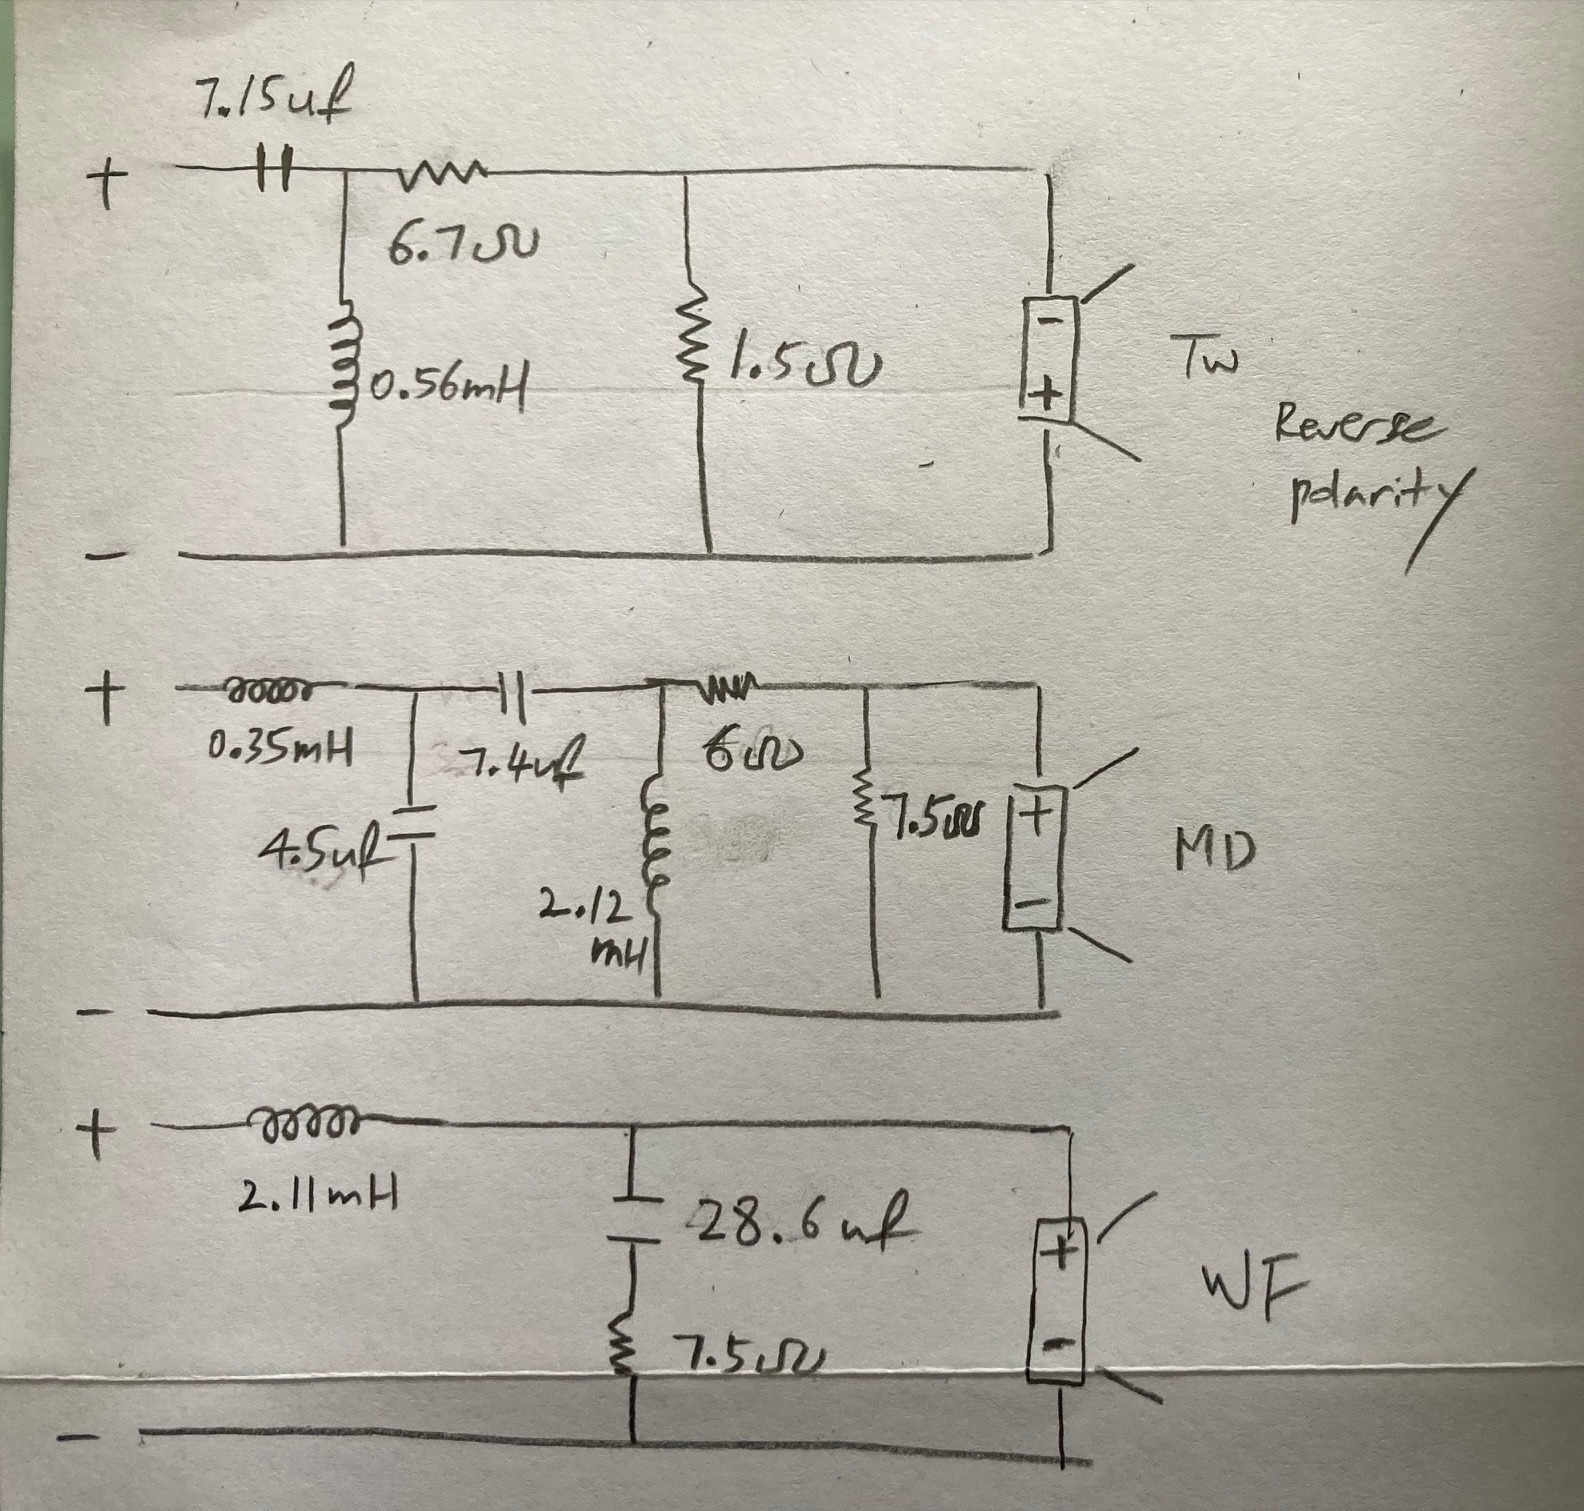 7.15uf
+
6.7Ω
0.56mH
1.5Ω
-
+
Tw
Reverse
polarity
-
+
0.35mH
7.4uf
6Ω
4.5uf
7.5Ω
+
-
MD
2.12
mH
-
+
2.11mH
28.6uf
+
-
WF
7.5Ω
-